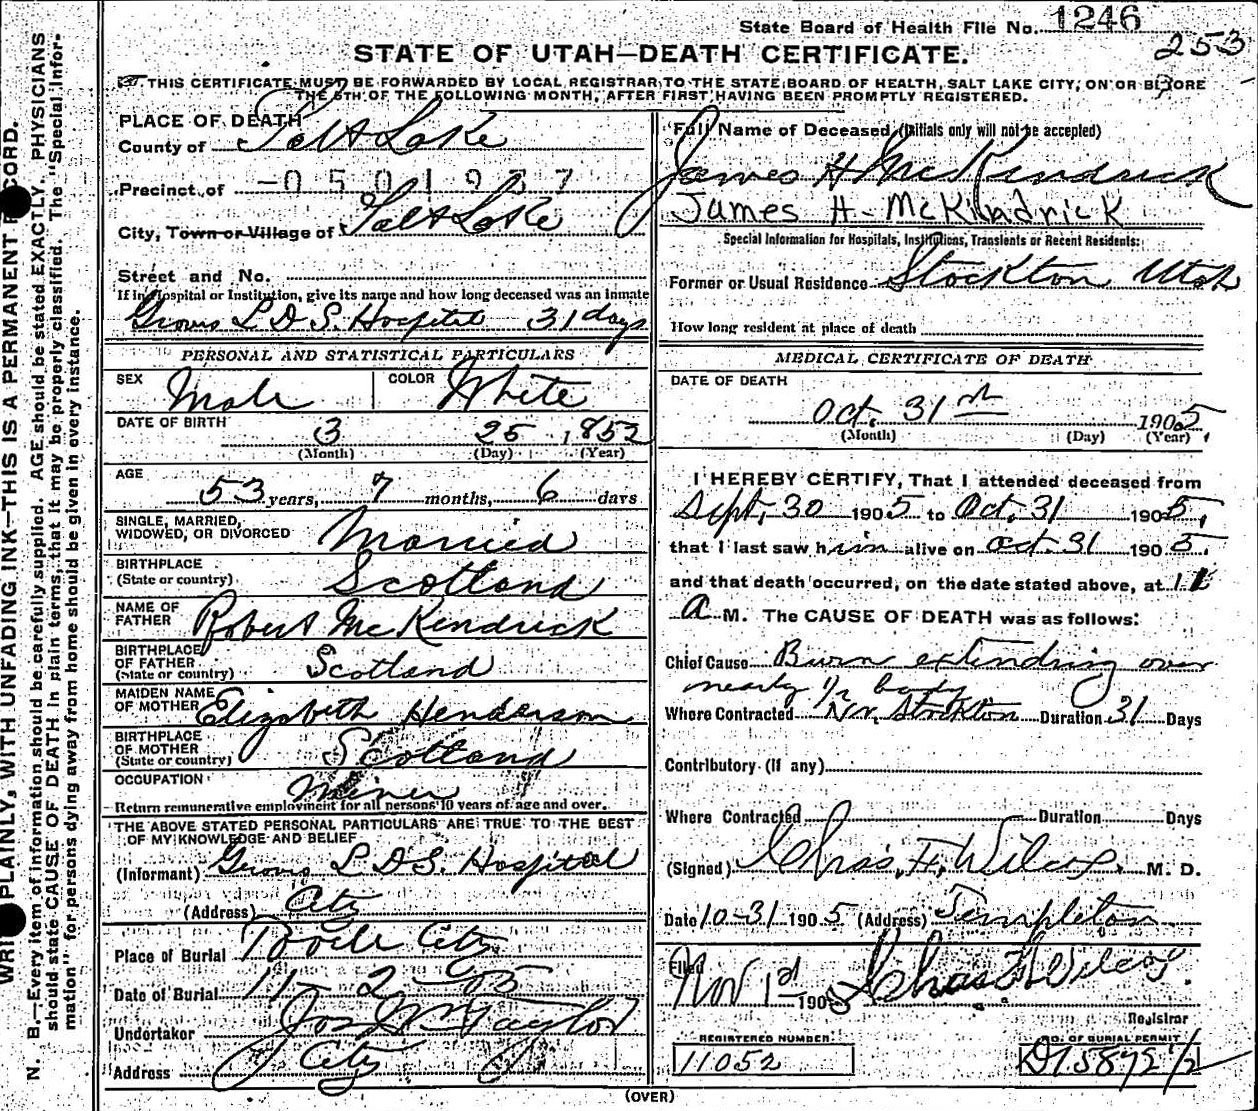 State Board of Health File No. 1246
253
STATE OF UTAH—DEATH CERTIFICATE.
THIS CERTIFICATE MUST BE FORWARDED BY LOCAL REGISTRAR TO THE STATE BOARD OF HEALTH, SALT LAKE CITY, ON OR BEFORE
THE 5TH OF THE FOLLOWING MONTH, AFTER FIRST HAVING BEEN PROMPTLY REGISTERED.
PLACE OF DEATH
County of Salt Lake
Precinct of
City, Town or Village of Salt Lake
Street and No.
If in Hospital or Institution, give its name and how long deceased was an Inmate
Groves L.D.S. Hospital 31 days
PERSONAL AND STATISTICAL PARTICULARS
SEX Male COLOR White
DATE OF BIRTH
3 25 1852
(Month) (Day) (Year)
AGE
53 years, 7 months, 6 days
SINGLE, MARRIED,
WIDOWED, OR DIVORCED Married
BIRTHPLACE
(State or country) Scotland
NAME OF
FATHER Robert McKendrick
BIRTHPLACE
OF FATHER
(State or country) Scotland
MAIDEN NAME
OF MOTHER Elizabeth Henderson
BIRTHPLACE
OF MOTHER
(State or country) Scotland
OCCUPATION Miner
Return remunerative employment for all persons 10 years of age and over.
THE ABOVE STATED PERSONAL PARTICULARS ARE TRUE TO THE BEST
OF MY KNOWLEDGE AND BELIEF
(Informant) Groves L.D.S. Hospital
(Address) City
Place of Burial Tooele City
Date of Burial 11-2-05
Undertaker Jos Wm Taylor
Address City
Full Name of Deceased (Initials only will not be accepted)
James H McKendrick
James H. McKindrick
Special Information for Hospitals, Institutions, Transients or Recent Residents:
Former or Usual Residence Stockton Utah
How long resident at place of death
MEDICAL CERTIFICATE OF DEATH
DATE OF DEATH
Oct. 31st 1905
(Month) (Day) (Year)
I HEREBY CERTIFY, That I attended deceased from
Sept. 30 1905 to Oct. 31 1905,
that I last saw him alive on Oct. 31 1905.
and that death occurred, on the date stated above, at 11
A M. The CAUSE OF DEATH was as follows:
Chief Cause Burn extending over
nearly 1/2 body
Where Contracted Nr. Stockton Duration 31 Days
Contributory (If any)
Where Contracted Duration Days
(Signed) Chas. F. Wilcox. M. D.
Date 10-31 1905 (Address) Templeton
Filed
Nov 1st 1905 Chas F Wilcox
Registrar
REGISTERED NUMBER
11052
NO. OF BURIAL PERMIT
(OVER)
WRITE PLAINLY, WITH UNFADING INK—THIS IS A PERMANENT RECORD.
N. B.—Every item of information should be carefully supplied. AGE should be stated EXACTLY. PHYSICIANS
should state CAUSE OF DEATH in plain terms, that it may be properly classified. The "Special Infor-
mation" for persons dying away from home should be given in every instance.